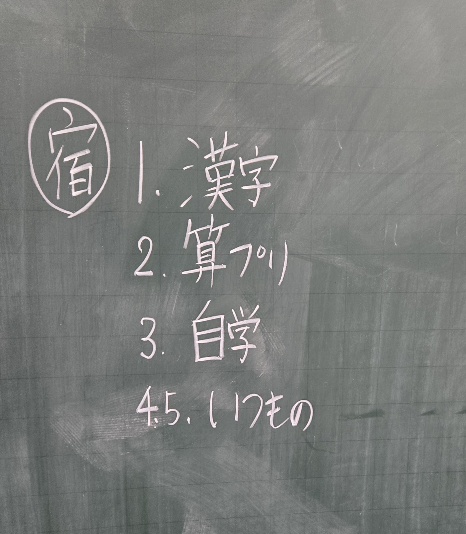 宿
1. 漢字
2. 算プリ
3. 自学
4.5. いつもの